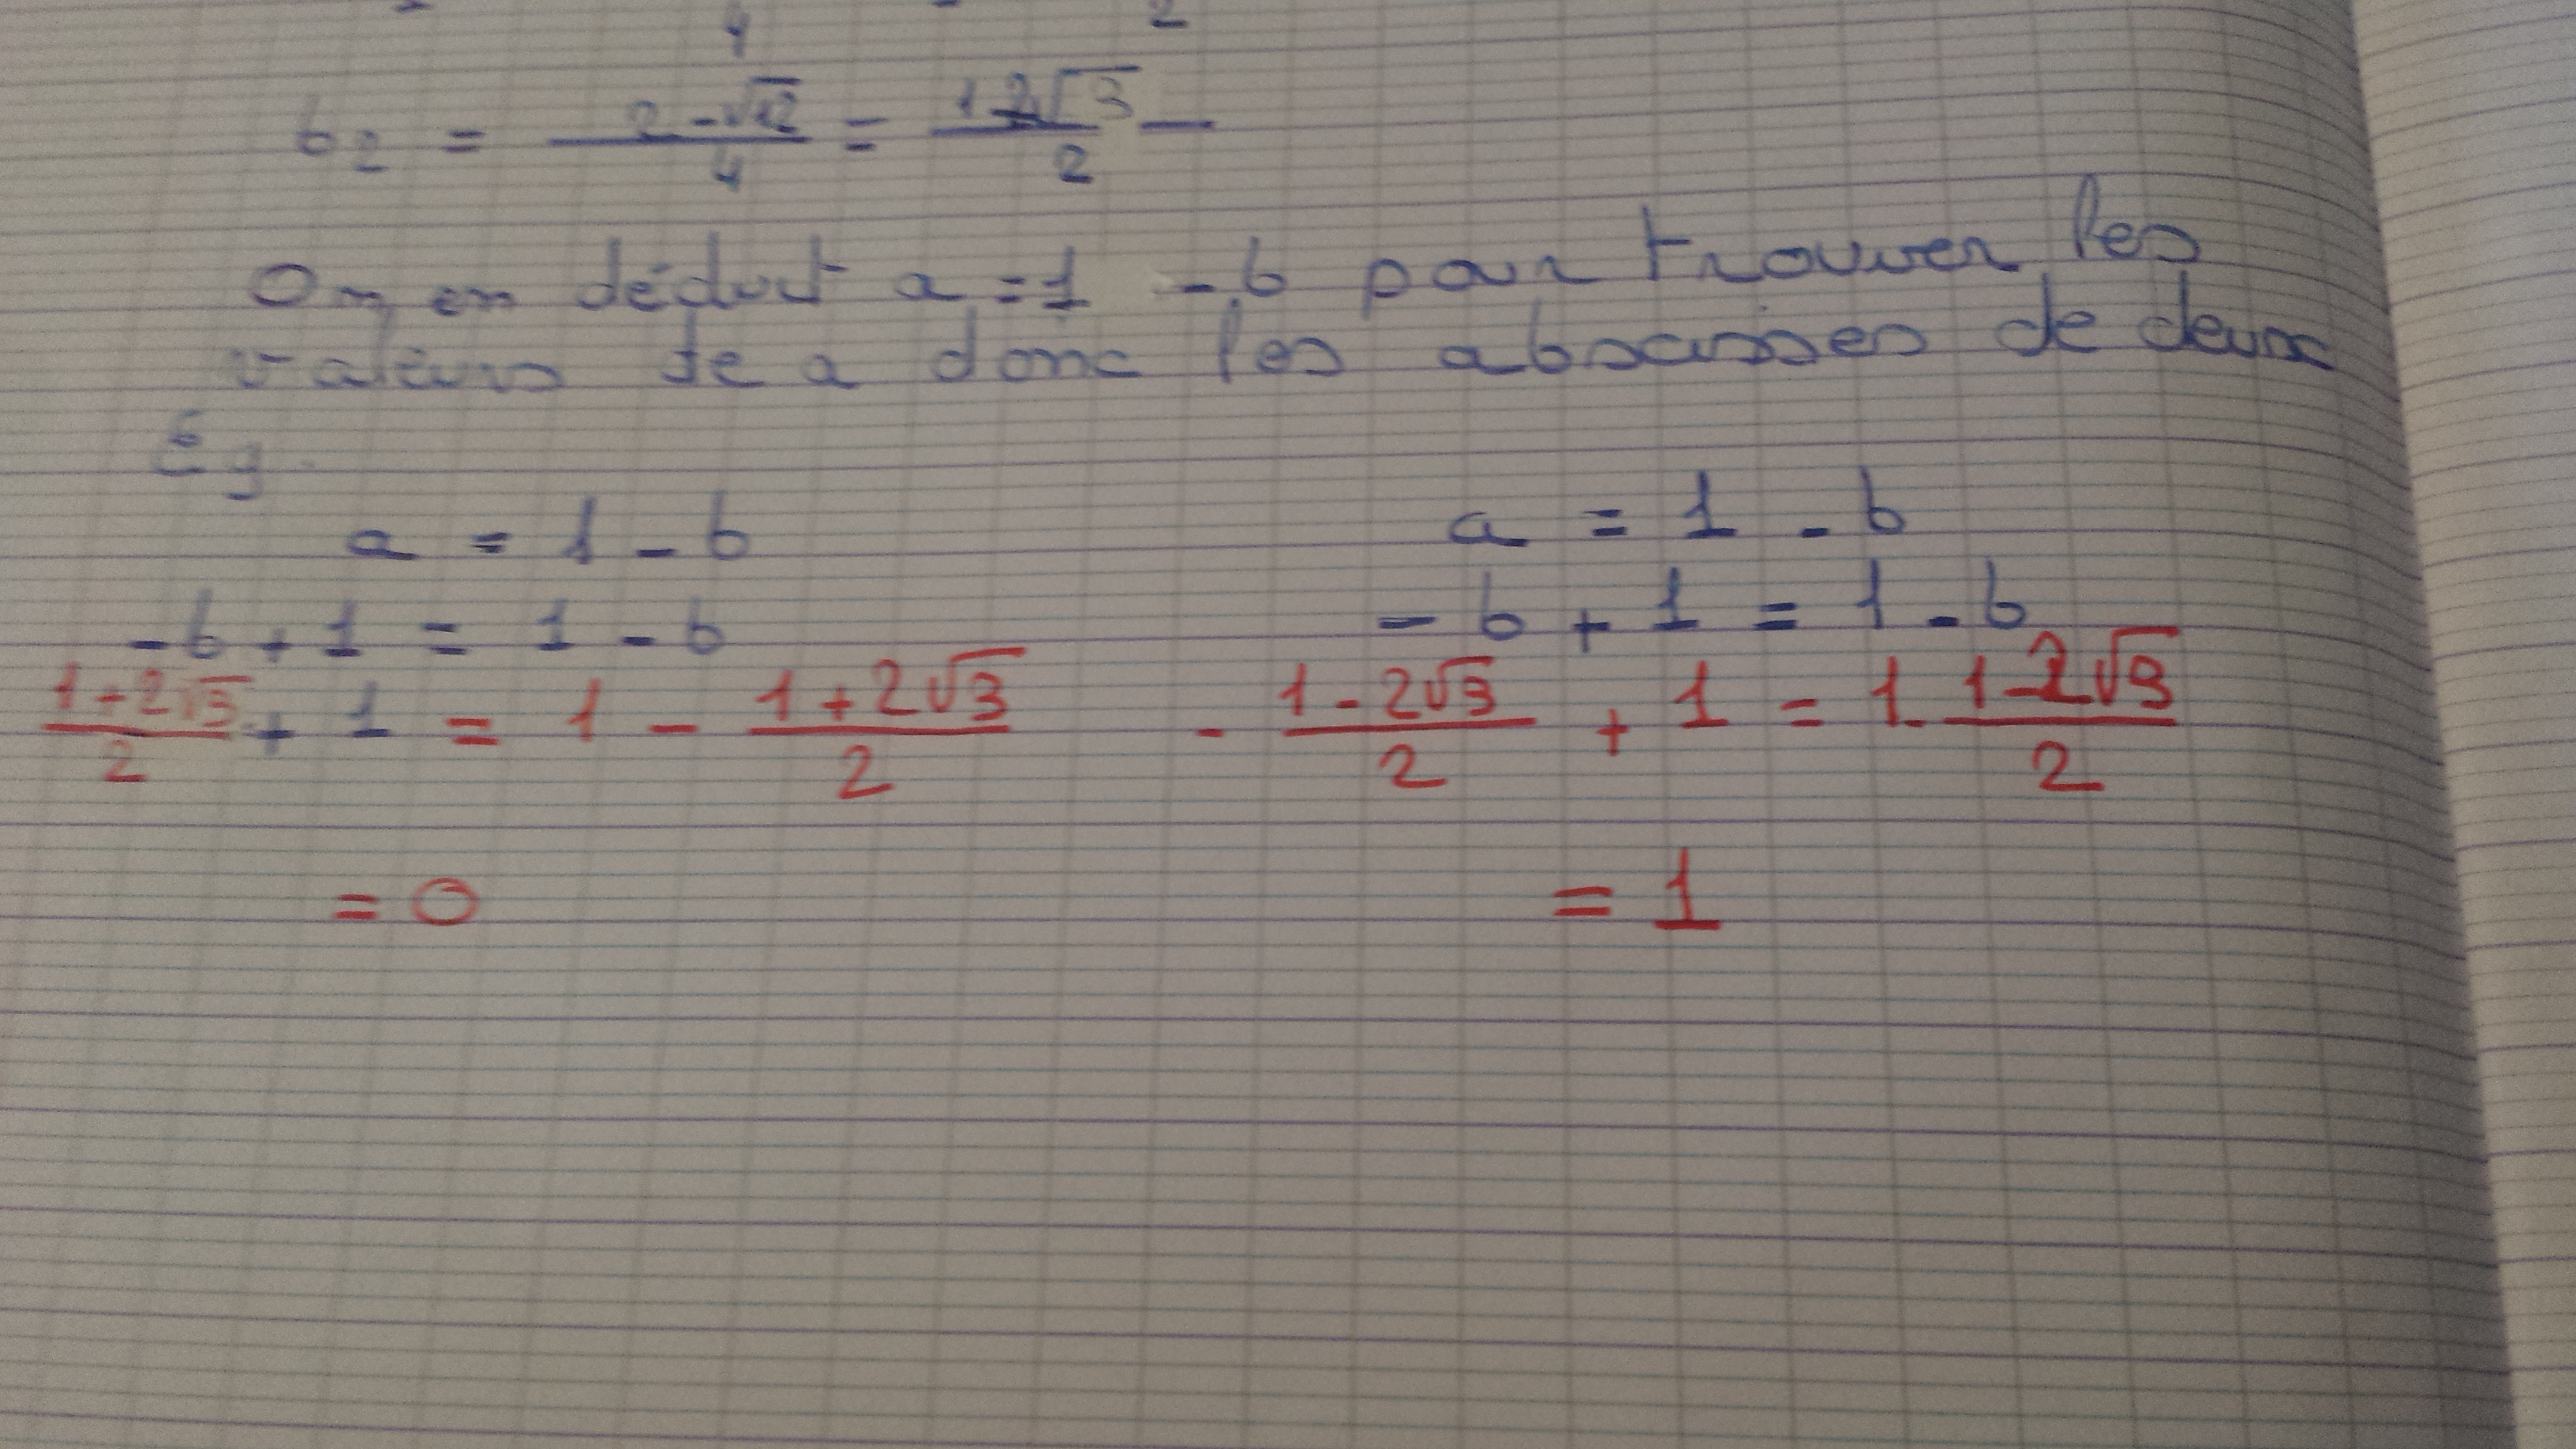 b2 = (2 - √12)/4 = (1 - 2√3)/2
On en déduit a = 1 - b pour trouver les
valeurs de a donc les abscisses de deux
Eq.
a = 1 - b        a = 1 - b
-b + 1 = 1 - b        - b + 1 = 1 - b
(1+2√3)/2 + 1 = 1 - (1+2√3)/2        - (1-2√3)/2 + 1 = 1 - (1-2√3)/2
= 0        = 1